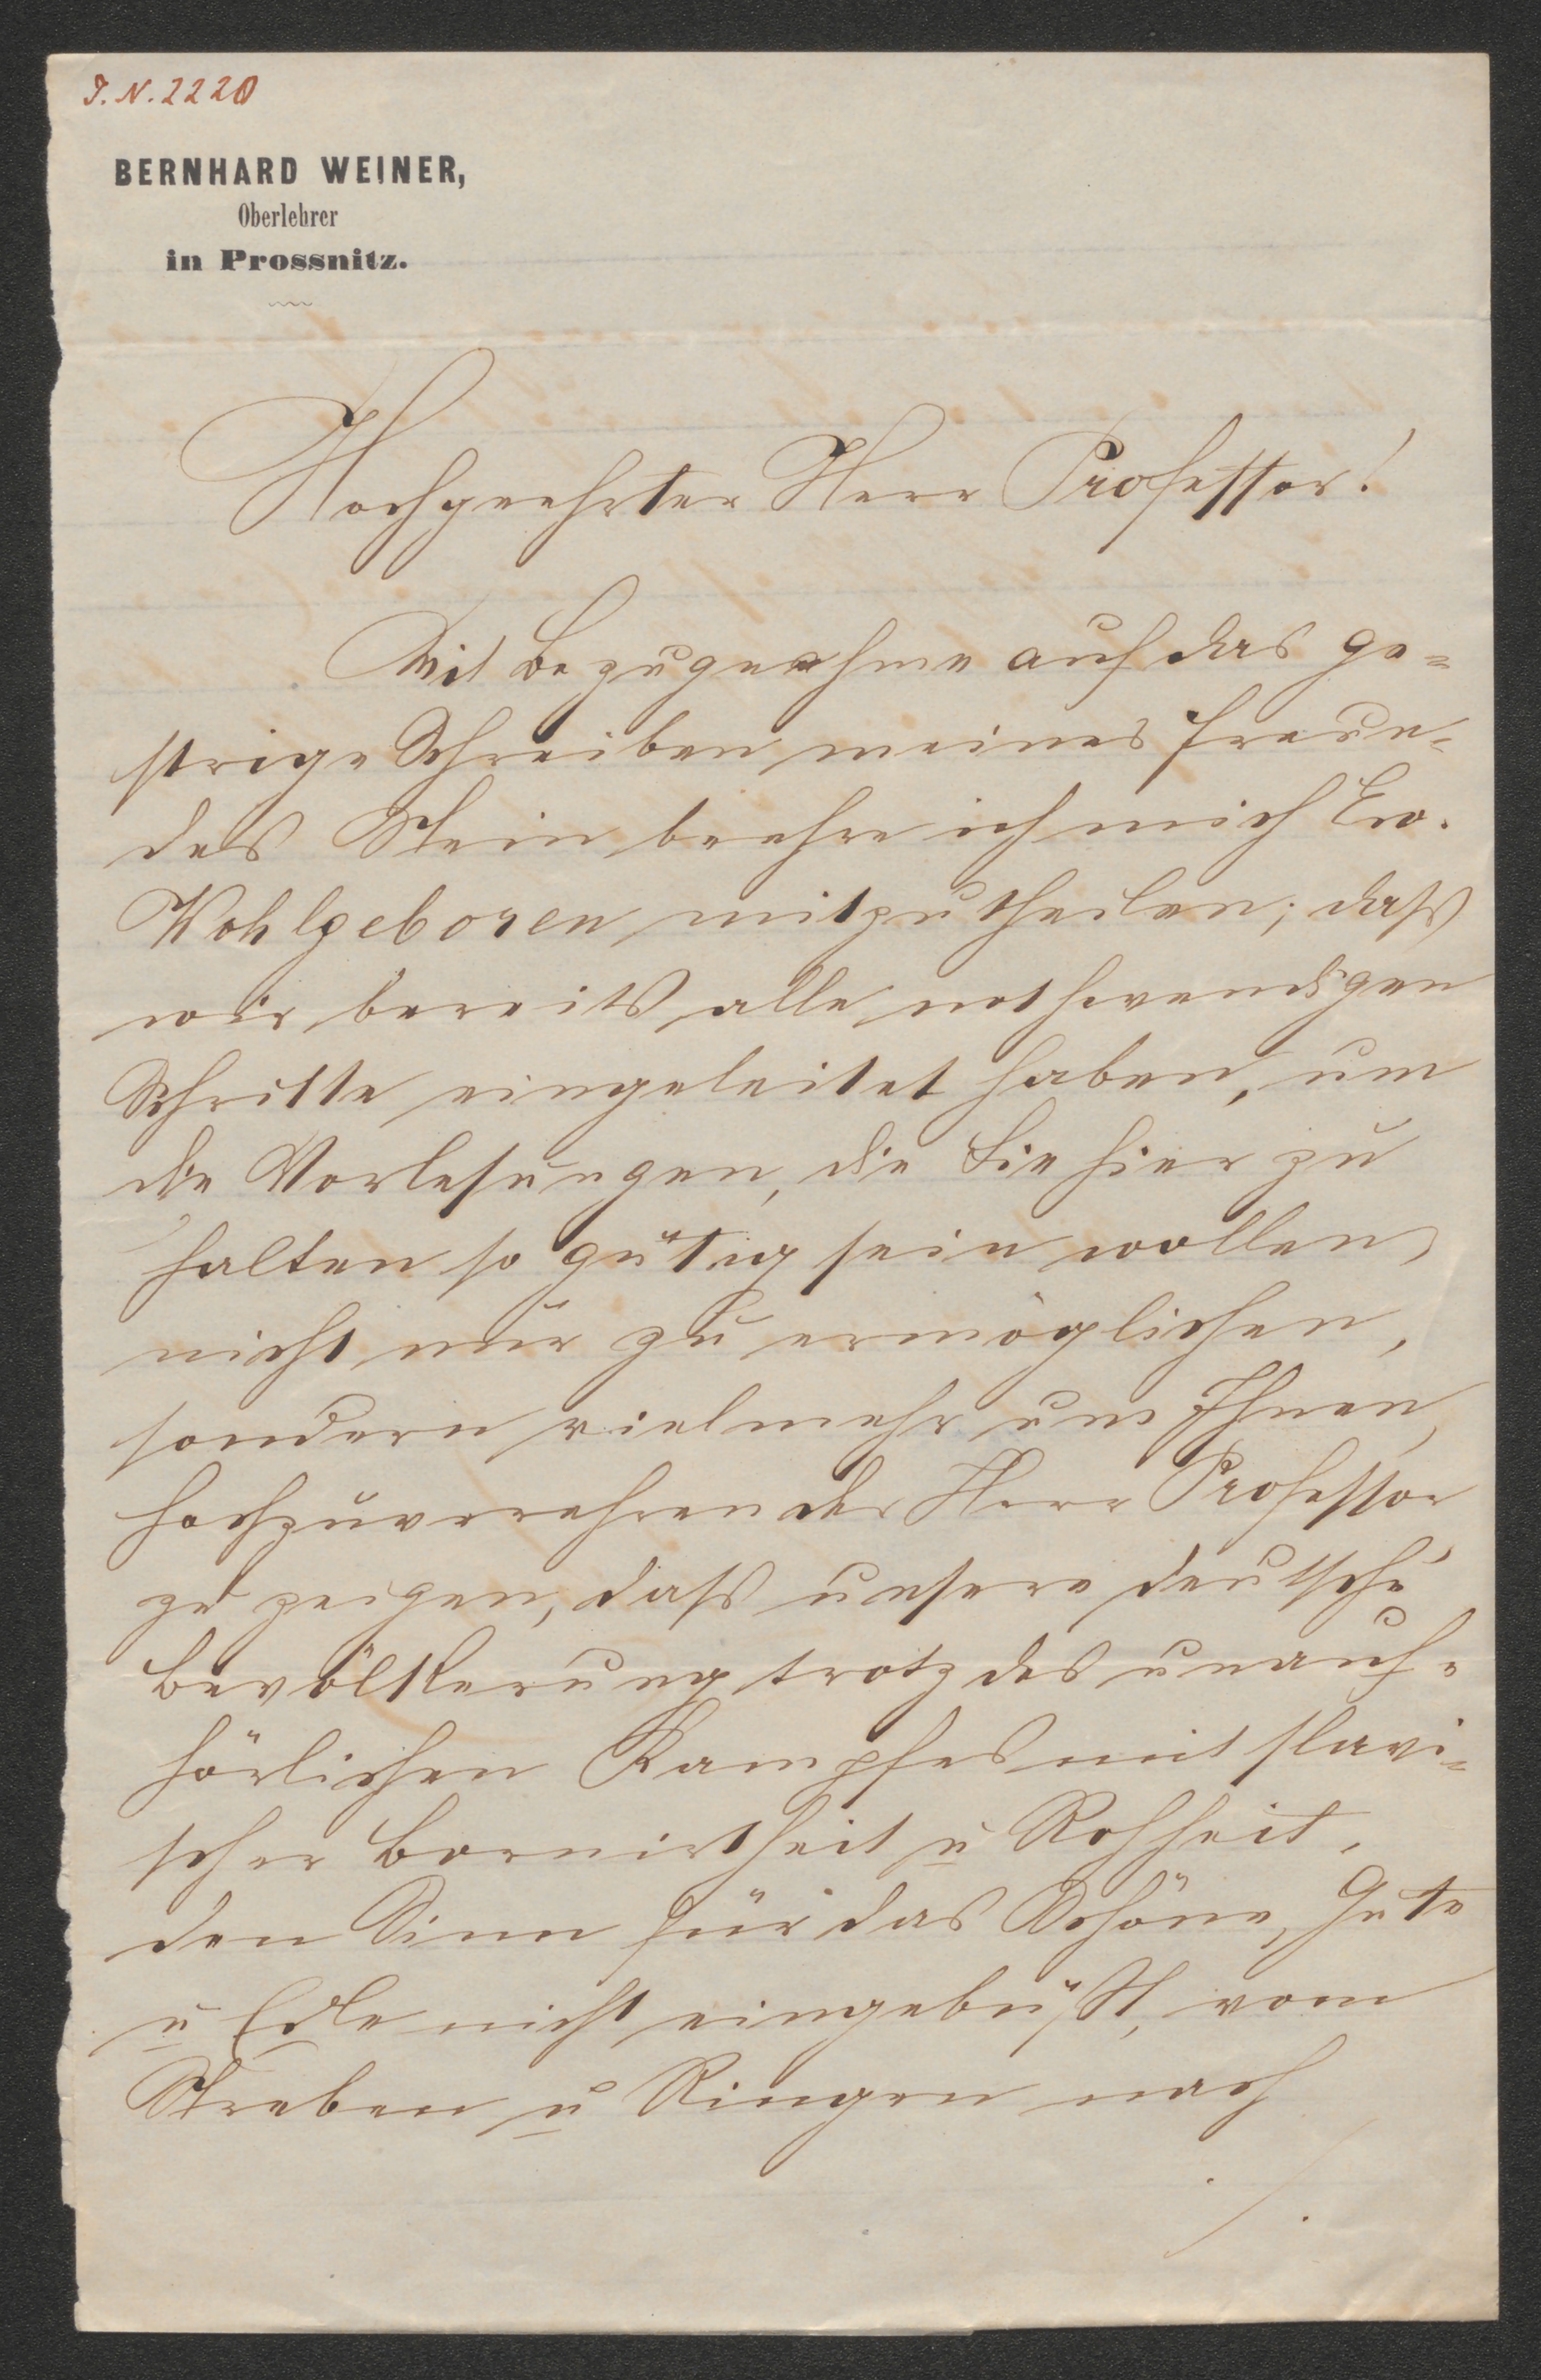 J. N. 2220
BERNHARD WEINER,
Oberlehrer
in Prossnitz.
Hochgeehrter Herr Professor!
Mit Bezugnahme auf das ge=
strige Schreiben meines Freun=
des Stein beehre ich mich Ew.
Wohlgeboren mitzutheilen; daß
wir bereits alle nothwendigen
Schritte eingeleitet haben, um
die Vorlesungen, die Sie hier zu
halten so gütig sein wollen
nicht nur zu ermöglichen,
sondern vielmehr um Ihnen,
hochzuverehrender Herr Professor
zu zeigen, daß unsere deutsche
Bevölkerung trotz des unauf=
hörlichen Kampfes mit slavi=
scher Bornirtheit u Rohheit,
den Sinn für das Schöne, Gute
u Edle nicht eingebüßt, vom
Streben u Ringen nach
./.